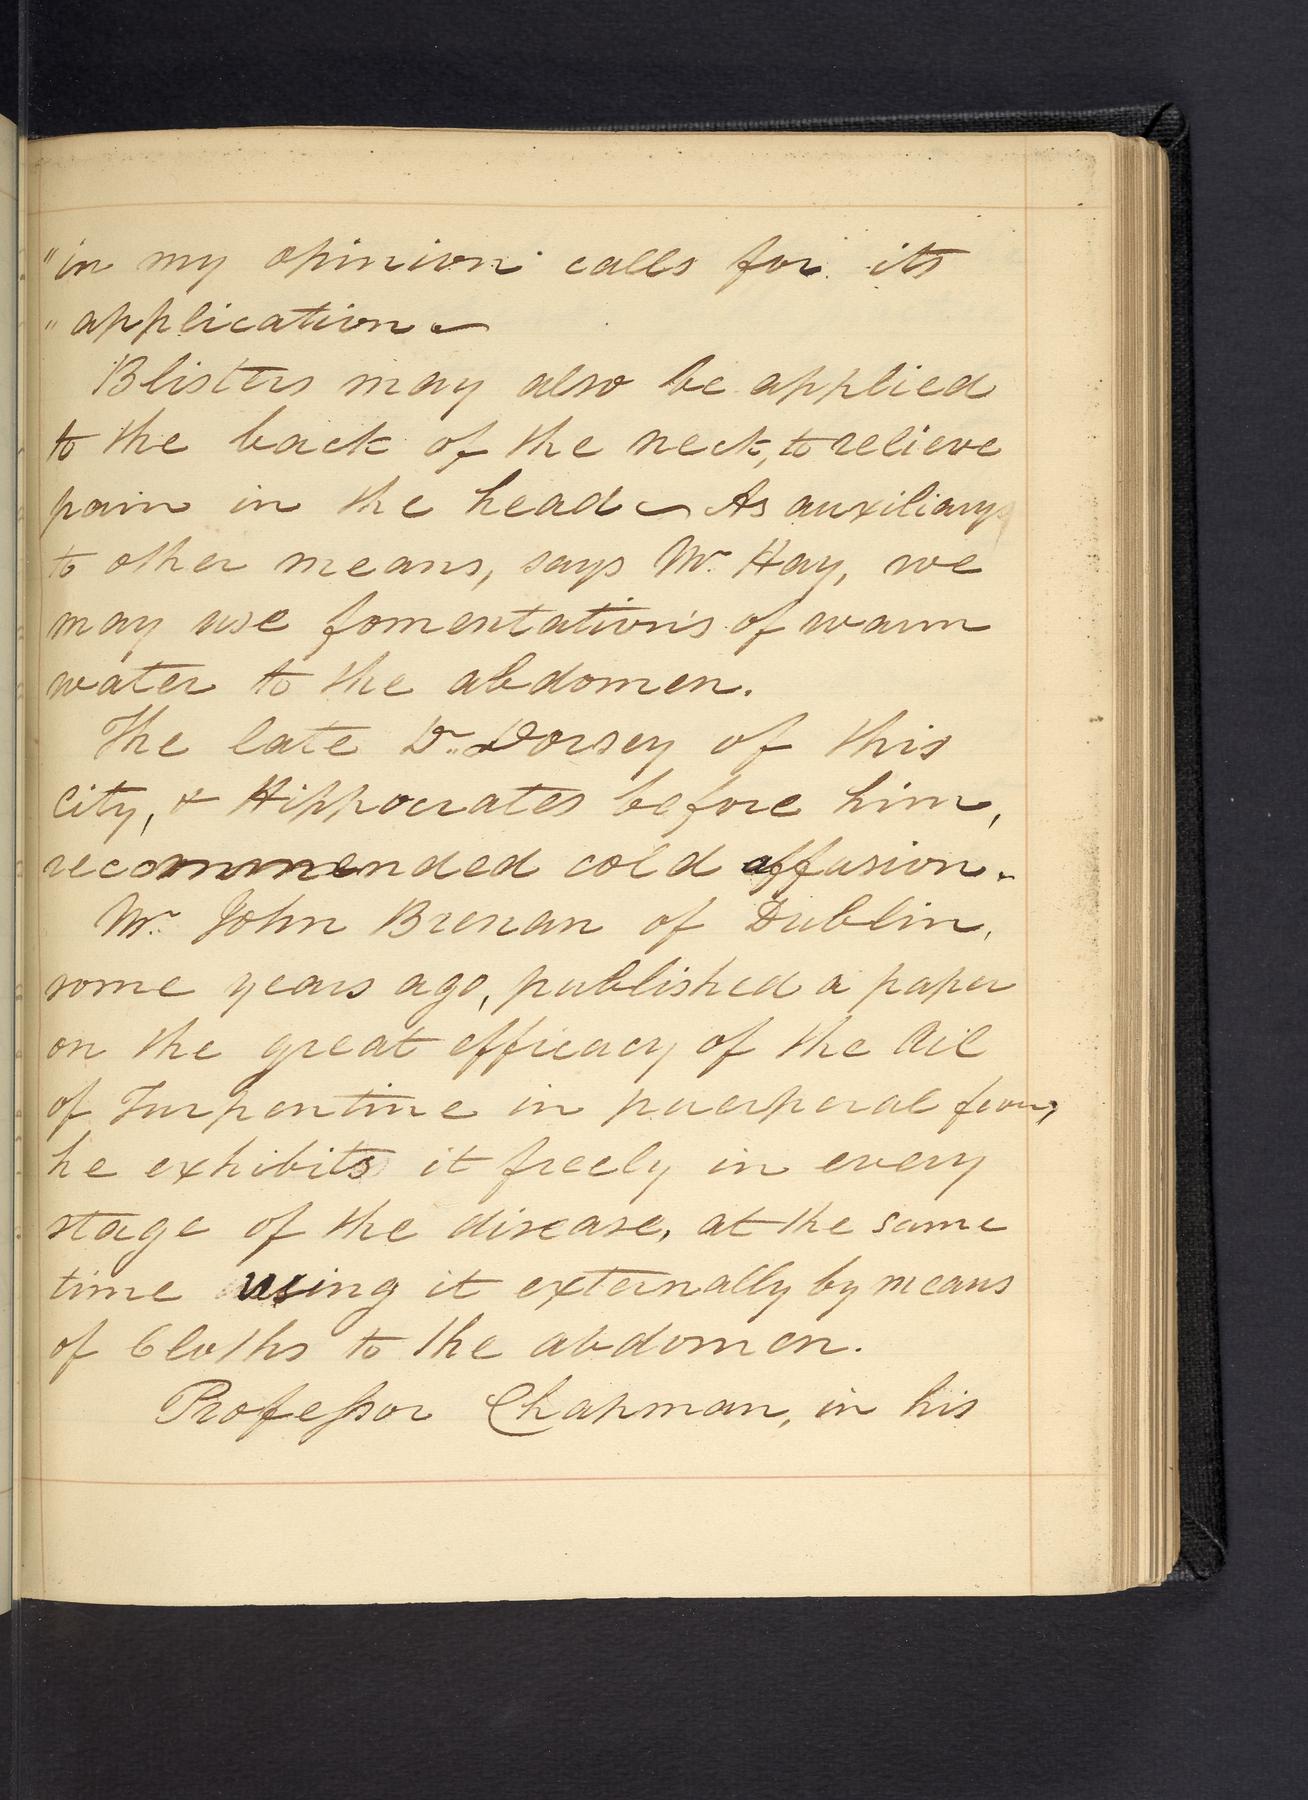 "in my opinion calls for its
"application
Blisters may also be applied
to the back of the neck, to relieve
pain in the head — As auxiliary
to other means, says Mr. Hay, we
may use fomentations of warm
water to the abdomen.
The late Dr. Dorsey of this
City, & Hippocrates before him,
recommended cold affusion.
Mr. John Brenan of Dublin,
some years ago, published a paper
on the great efficacy of the Oil
of Turpentine in puerperal fever,
he exhibits it freely in every
stage of the disease, at the same
time using it externally by means
of Cloths to the abdomen.
Professor Chapman, in his